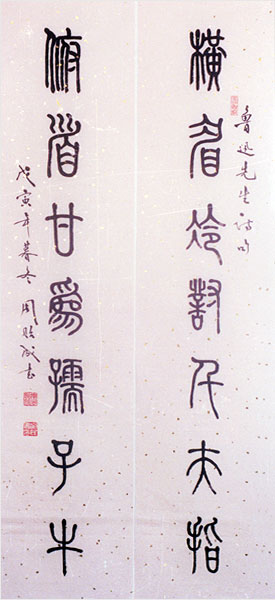 魯迅先生詩句
橫眉冷對千夫指
俯首甘為孺子牛
戊寅年暮冬周